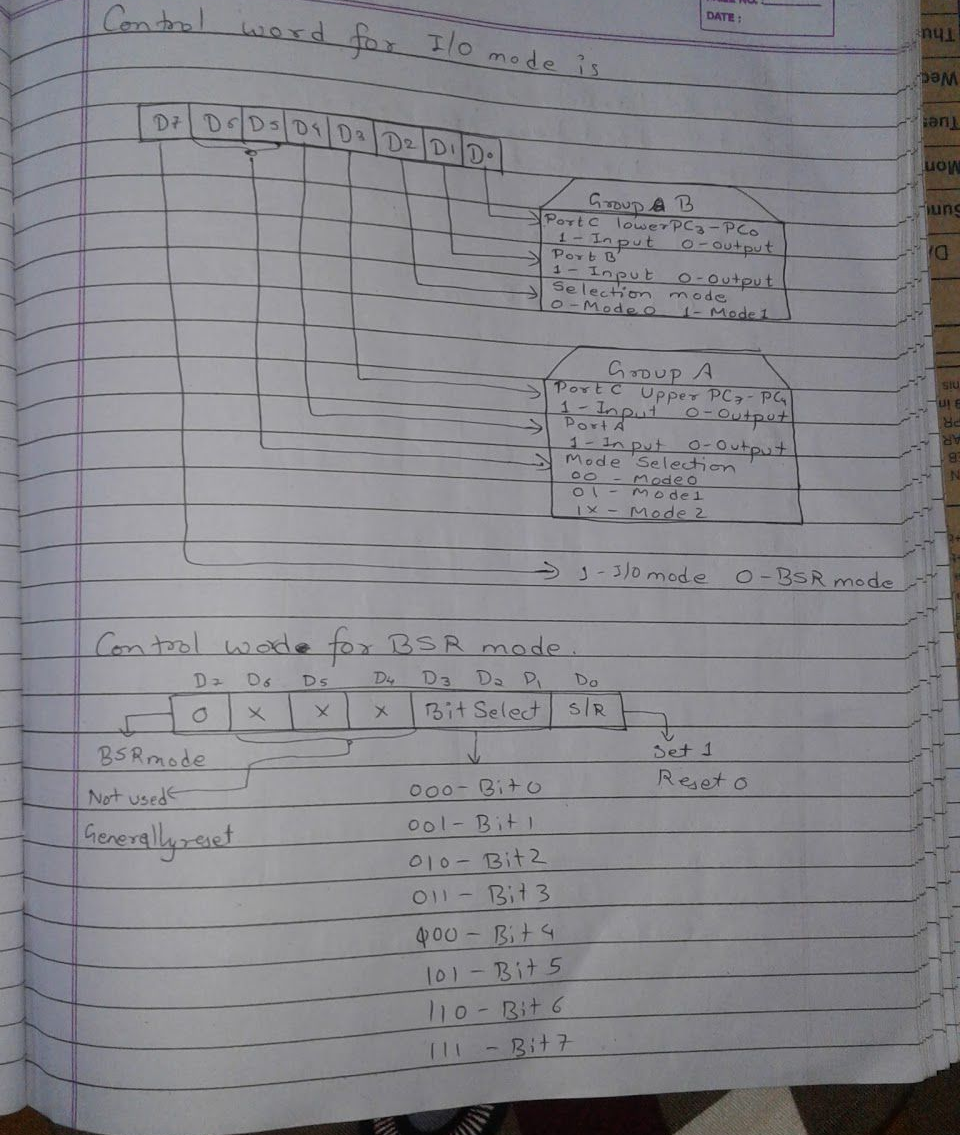 DATE :
Control word for I/O mode is
D7 D6 D5 D4 D3 D2 D1 D0
Group B
Port C lower PC3-PC0
1-Input 0-output
Port B
1-Input 0-Output
Selection mode
0-Mode0 1-Mode1
Group A
Port C Upper PC7-PC4
1-Input 0-Output
Port A
1-Input 0-Output
Mode Selection
00 - Mode0
01 - Mode1
1X - Mode 2
1-I/O mode 0-BSR mode
Control word for BSR mode.
D7 D6 D5 D4 D3 D2 D1 D0
0 X X X Bit Select S/R
BSR mode
Set 1
Reset 0
Not used
Generally reset
000 - Bit 0
001 - Bit 1
010 - Bit 2
011 - Bit 3
100 - Bit 4
101 - Bit 5
110 - Bit 6
111 - Bit 7
Thu
Wed
Tues
Mon
Sun